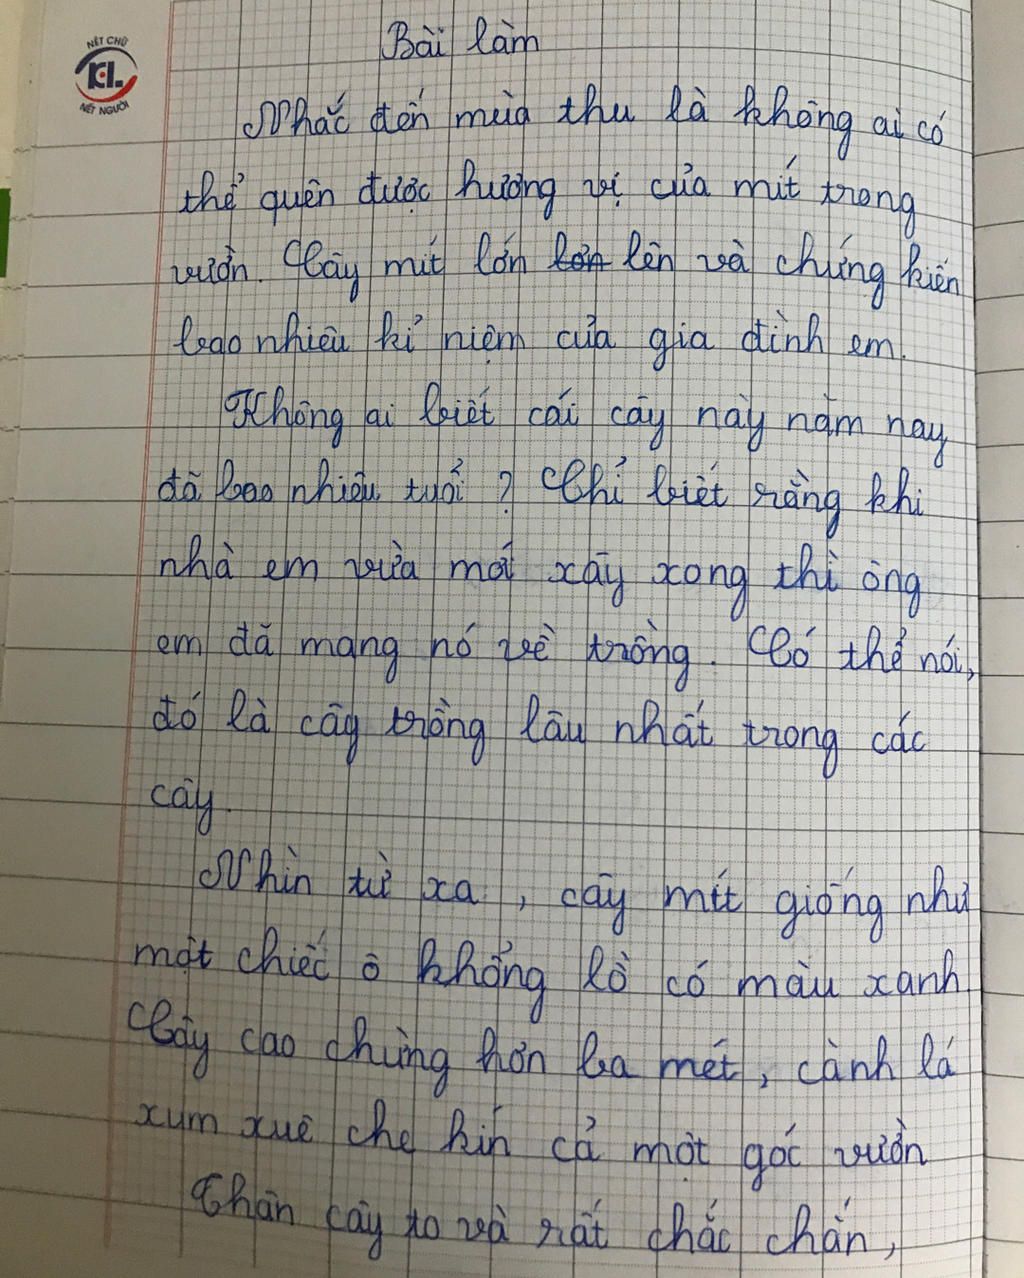 NÉT CHỮ
KL
NẾT NGƯỜI
Bài làm
Nhắc đến mùa thu là không ai có
thể quên được hương vị của mít trong
vườn. Cây mít lớn lớn lên và chứng kiến
bao nhiêu kỉ niệm của gia đình em.
Không ai biết cái cây này năm nay
đã bao nhiêu tuổi ? Chỉ biết rằng khi
nhà em vừa mới xây xong thì ông
em đã mang nó về trồng. Có thể nói,
đó là cây trồng lâu nhất trong các
cây.
Nhìn từ xa, cây mít giống như
một chiếc ô khổng lồ có màu xanh.
Cây cao chừng hơn ba mét, cành lá
xum xuê che kín cả một góc vườn
Thân cây to và rất chắc chắn,